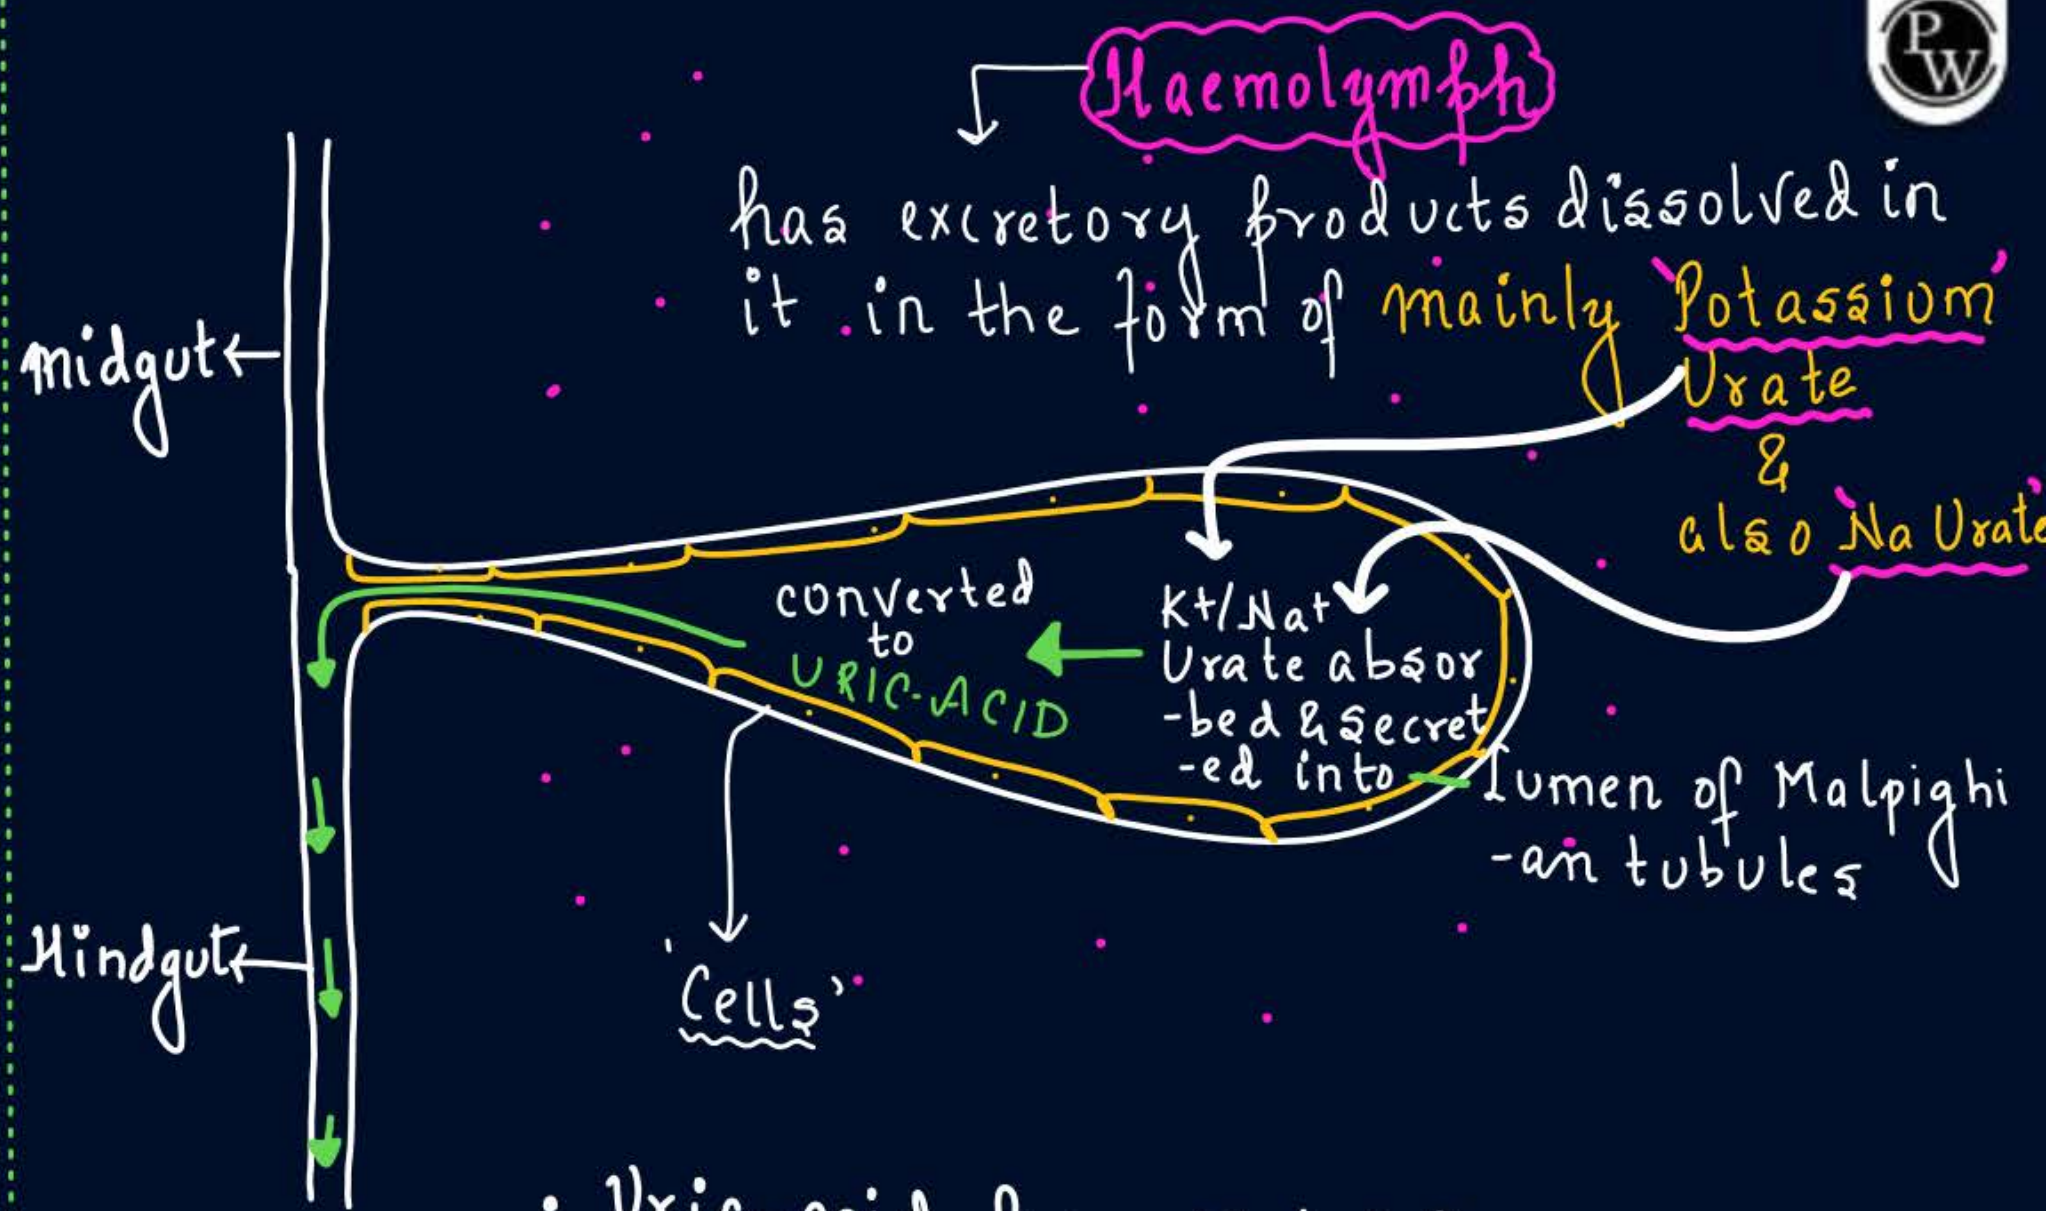 PW
Haemolymph
has excretory products dissolved in
it in the form of mainly 'Potassium'
Urate
&
also 'Na Urate'
midgut
converted
to
URIC-ACID
K+/Na+
Urate absor
-bed & secret
-ed into
lumen of Malpighi
-an tubules
Hindgut
'Cells'